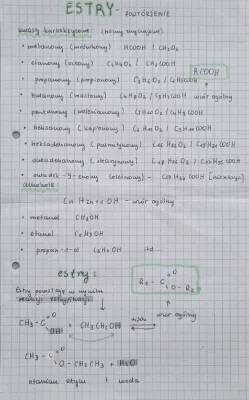 ESTRY - POWTÓRZENIE
kwasy karboksylowe (nazwy zwyczajowe)
• metanowy (mrówkowy) HCOOH / CH₂O₂
• etanowy (octowy) C₂H₄O₂ / CH₃COOH
RCOOH
• propanowy (propionowy) C₃H₆O₂ / C₂H₅COOH
• butanowy (masłowy) C₄H₈O₂ / C₃H₇COOH wzór ogólny
• pentanowy (walerianowy) C₅H₁₀O₂ / C₄H₉COOH
• heksanowy (kapronowy) C₆H₁₂O₂ / C₅H₁₁COOH
• heksadekanowy (palmitynowy) C₁₆H₃₂O₂ / C₁₅H₃₁COOH
• oktadekanowy (stearynowy) C₁₈H₃₆O₂ / C₁₇H₃₅COOH
• oktadek-9-enowy (oleinowy) - C₁₇H₃₃COOH
alkohole
CnH2n+1OH - wzór ogólny
• metanol CH₃OH
• etanol C₂H₅OH
• propan-1-ol C₃H₇OH itd...
estry:
R₁ - C
O
O - R₂
Estry powstają w wyniku
reakcji estryfikacji
wzór ogólny
CH₃ - C
O
OH
+ CH₃CH₂OH
H₂SO₄
CH₃ - C
O
O - CH₂CH₃ + H₂O
etanian etylu + woda